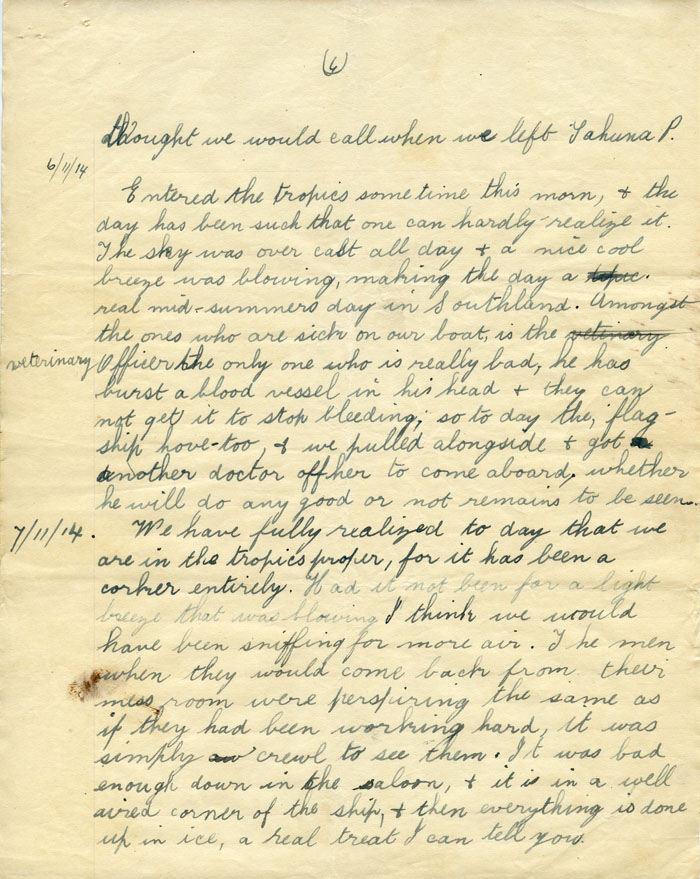 (6)
thought we would call when we left Tahuna P.
6/11/14
Entered the tropics some time this morn, & the
day has been such that one can hardly realize it.
The sky was over cast all day & a nice cool
breeze was blowing, making the day a topic.
real mid-summers day in Southland. Amongst
the ones who are sick on our boat, is the vetenary
veterinary Officer the only one who is really bad, he has
burst a blood vessel in his head & they can
not get it to stop bleeding; so to day the, flag-
ship hove-too, & we pulled alongside & got a
another doctor off her to come aboard. whether
he will do any good or not remains to be seen.
7/11/14. We have fully realized to day that we
are in the tropics proper, for it has been a
corker entirely. Had it not been for a light
breeze that was blowing I think we would
have been sniffing for more air. The men
when they would come back from their
mess room were perspiring the same as
if they had been working hard, it was
simply crewl to see them. It was bad
enough down in the saloon, & it is in a well
aired corner of the ship, & then everything is done
up in ice, a real treat I can tell you.